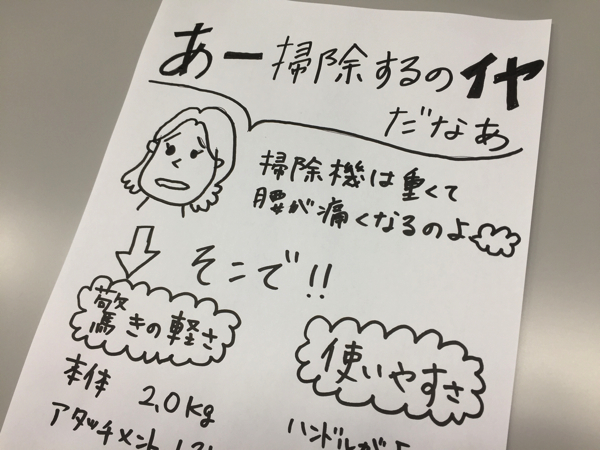 あー掃除するのイヤ
だなあ
掃除機は重くて
腰が痛くなるのよ
そこで!!
驚きの軽さ
使いやすさ
本体 2.0kg
アタッチメント
ハンドルが